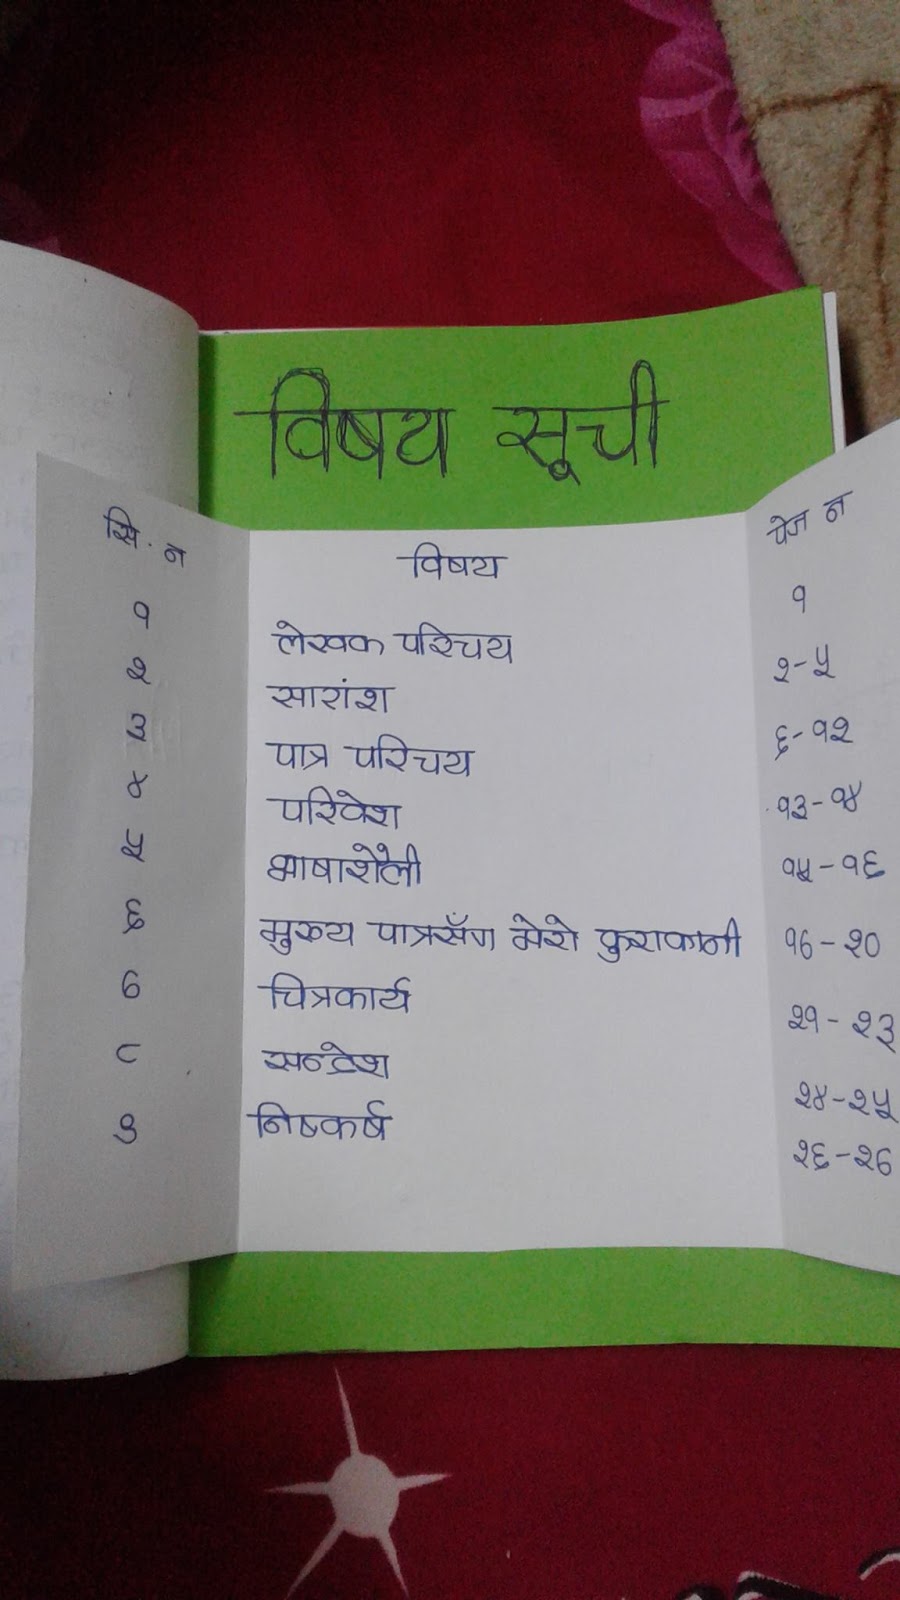 विषय सूची
सि. न विषय पेज न
१ लेखक परिचय १
२ सारांश २-५
३ पात्र परिचय ६-१२
४ परिवेश १३-१४
५ भाषाशैली १५-१६
६ मुख्य पात्रसँग मेरो कुराकानी १७-२०
७ चित्रकार्य २१-२३
८ सन्देश २४-२५
९ निष्कर्ष २६-२७